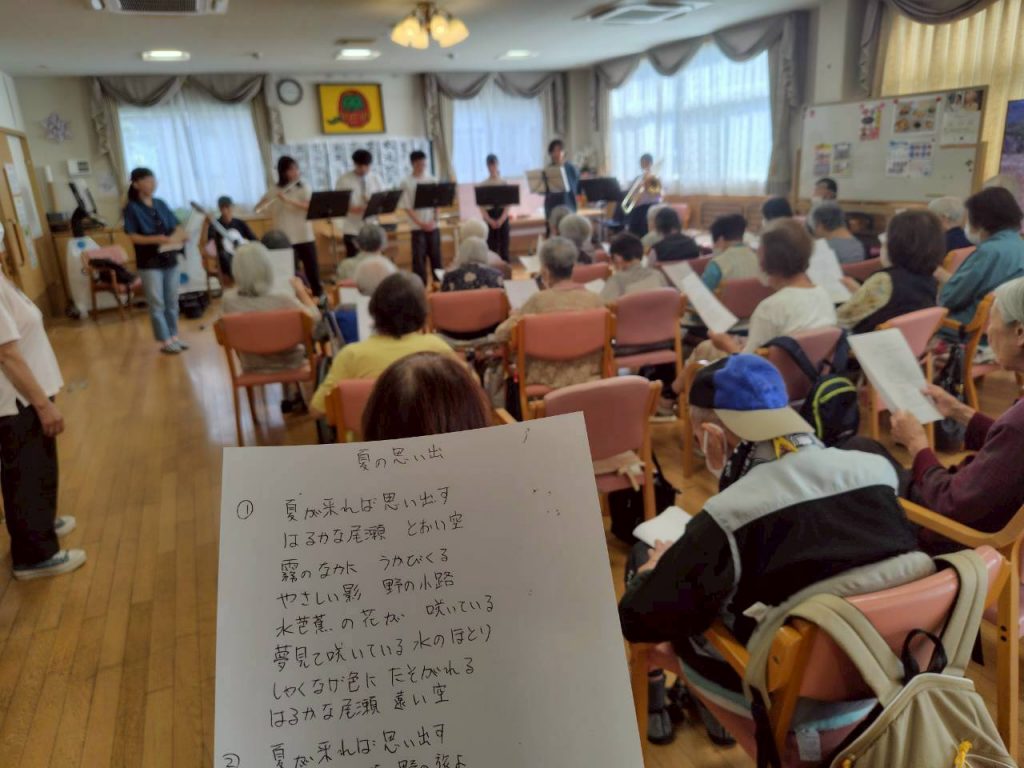 夏の思い出
① 夏が来れば思い出す
はるかな尾瀬 とおい空
霧のなかに うかびくる
やさしい影 野の小路
水芭蕉の花が 咲いている
夢見て咲いている水のほとり
しゃくなげ色に たそがれる
はるかな尾瀬 遠い空
② 夏が来れば思い出す
野の旅よ